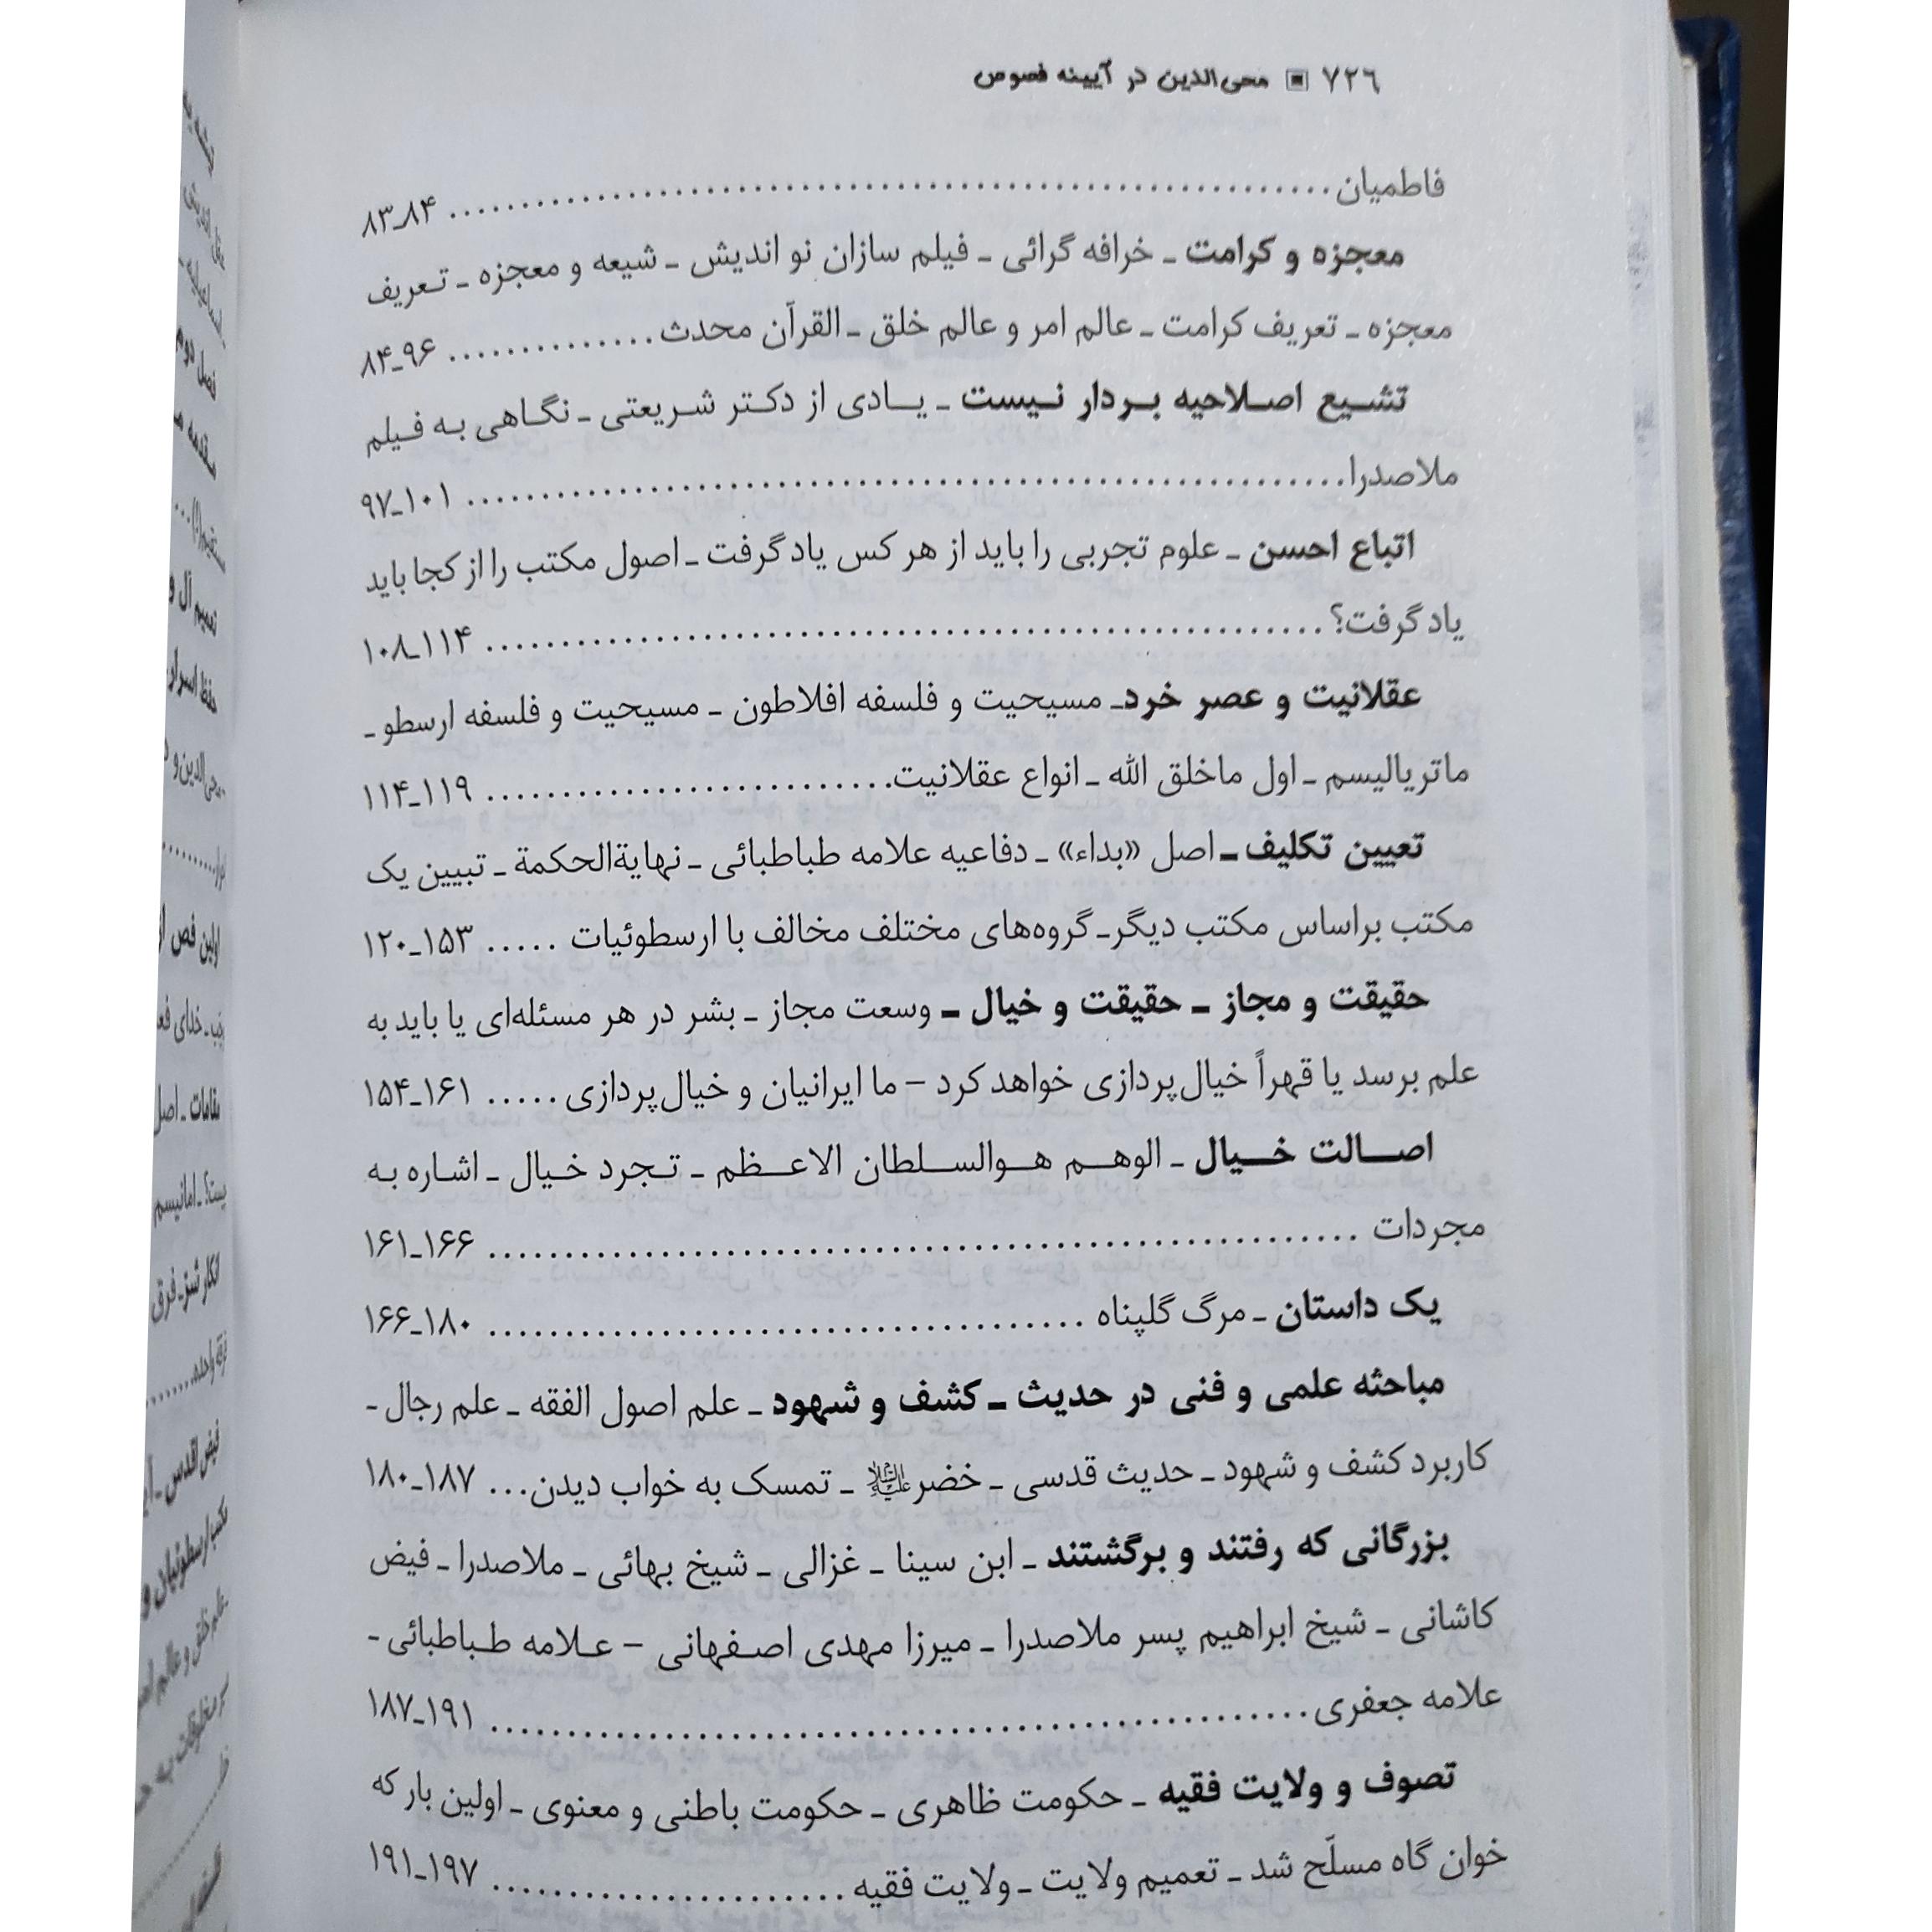 ۷۲۶ ▣ محی‌الدین در آیینه فصوص
فاطمیان ........ ۸۴ـ۸۳
معجزه و کرامت ـ خرافه گرائی ـ فیلم سازان نو اندیش ـ شیعه و معجزه ـ تعریف
معجزه ـ تعریف کرامت ـ عالم امر و عالم خلق ـ القرآن محدث ........ ۹۶ـ۸۴
تشیع اصلاحیه بردار نیست ـ یادی از دکتر شریعتی ـ نگاهی به فیلم
ملاصدرا ........ ۱۰۱ـ۹۷
اتباع احسن ـ علوم تجربی را باید از هر کس یاد گرفت ـ اصول مکتب را از کجا باید
یاد گرفت؟ ........ ۱۱۴ـ۱۰۸
عقلانیت و عصر خرد ـ مسیحیت و فلسفه افلاطون ـ مسیحیت و فلسفه ارسطو ـ
ماتریالیسم ـ اول ماخلق الله ـ انواع عقلانیت ........ ۱۱۹ـ۱۱۴
تعیین تکلیف ـ اصل «بداء» ـ دفاعیه علامه طباطبائی ـ نهایةالحکمة ـ تبیین یک
مکتب براساس مکتب دیگر ـ گروه‌های مختلف مخالف با ارسطوئیات ..... ۱۵۳ـ۱۲۰
حقیقت و مجاز ـ حقیقت و خیال ـ وسعت مجاز ـ بشر در هر مسئله‌ای یا باید به
علم برسد یا قهراً خیال‌پردازی خواهد کرد – ما ایرانیان و خیال‌پردازی ..... ۱۶۱ـ۱۵۴
اصالت خیال ـ الوهم هوالسلطان الاعظم ـ تجرد خیال ـ اشاره به
مجردات ........ ۱۶۶ـ۱۶۱
یک داستان ـ مرگ گلپناه ........ ۱۸۰ـ۱۶۶
مباحثه علمی و فنی در حدیث ـ کشف و شهود ـ علم اصول الفقه ـ علم رجال -
کاربرد کشف و شهود ـ حدیث قدسی ـ خضر علیه‌السلام ـ تمسک به خواب دیدن ... ۱۸۷ـ۱۸۰
بزرگانی که رفتند و برگشتند ـ ابن سینا ـ غزالی ـ شیخ بهائی ـ ملاصدرا ـ فیض
کاشانی ـ شیخ ابراهیم پسر ملاصدرا ـ میرزا مهدی اصفهانی – علامه طباطبائی -
علامه جعفری ........ ۱۹۱ـ۱۸۷
تصوف و ولایت فقیه ـ حکومت ظاهری ـ حکومت باطنی و معنوی ـ اولین بار که
خوان گاه مسلّح شد ـ تعمیم ولایت ـ ولایت فقیه ........ ۱۹۷ـ۱۹۱